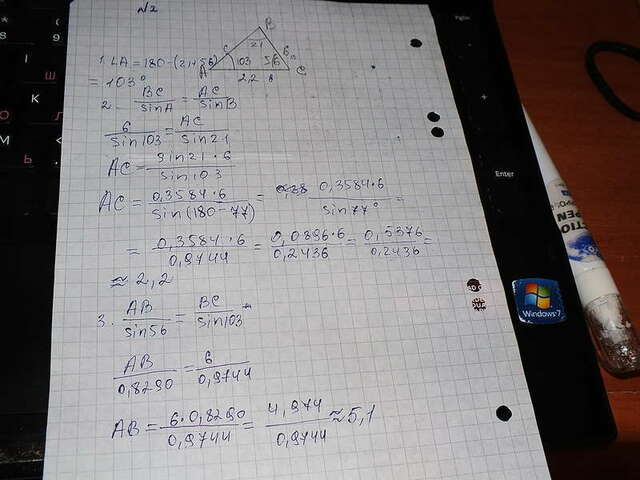 N2
B
21
c
103
56
A
2,2
в
C
1. LA = 180 - (21+56)
= 103°
2. BC/sinA = AC/sinB
6/sin103 = AC/sin21
AC = sin21·6/sin103
AC = 0,3584·6/sin(180-77) = 0,3584·6/sin77° =
= 0,3584·6/0,9744 = 0,0896·6/0,2436 = 0,5376/0,2436 =
≈ 2,2
3. AB/sin56 = BC/sin103
AB/0,8290 = 6/0,9744
AB = 6·0,8290/0,9744 = 4,974/0,9744 ≈ 5,1
PgUp
+
Enter
Windows 7
PEN
K
О
Л
Ь